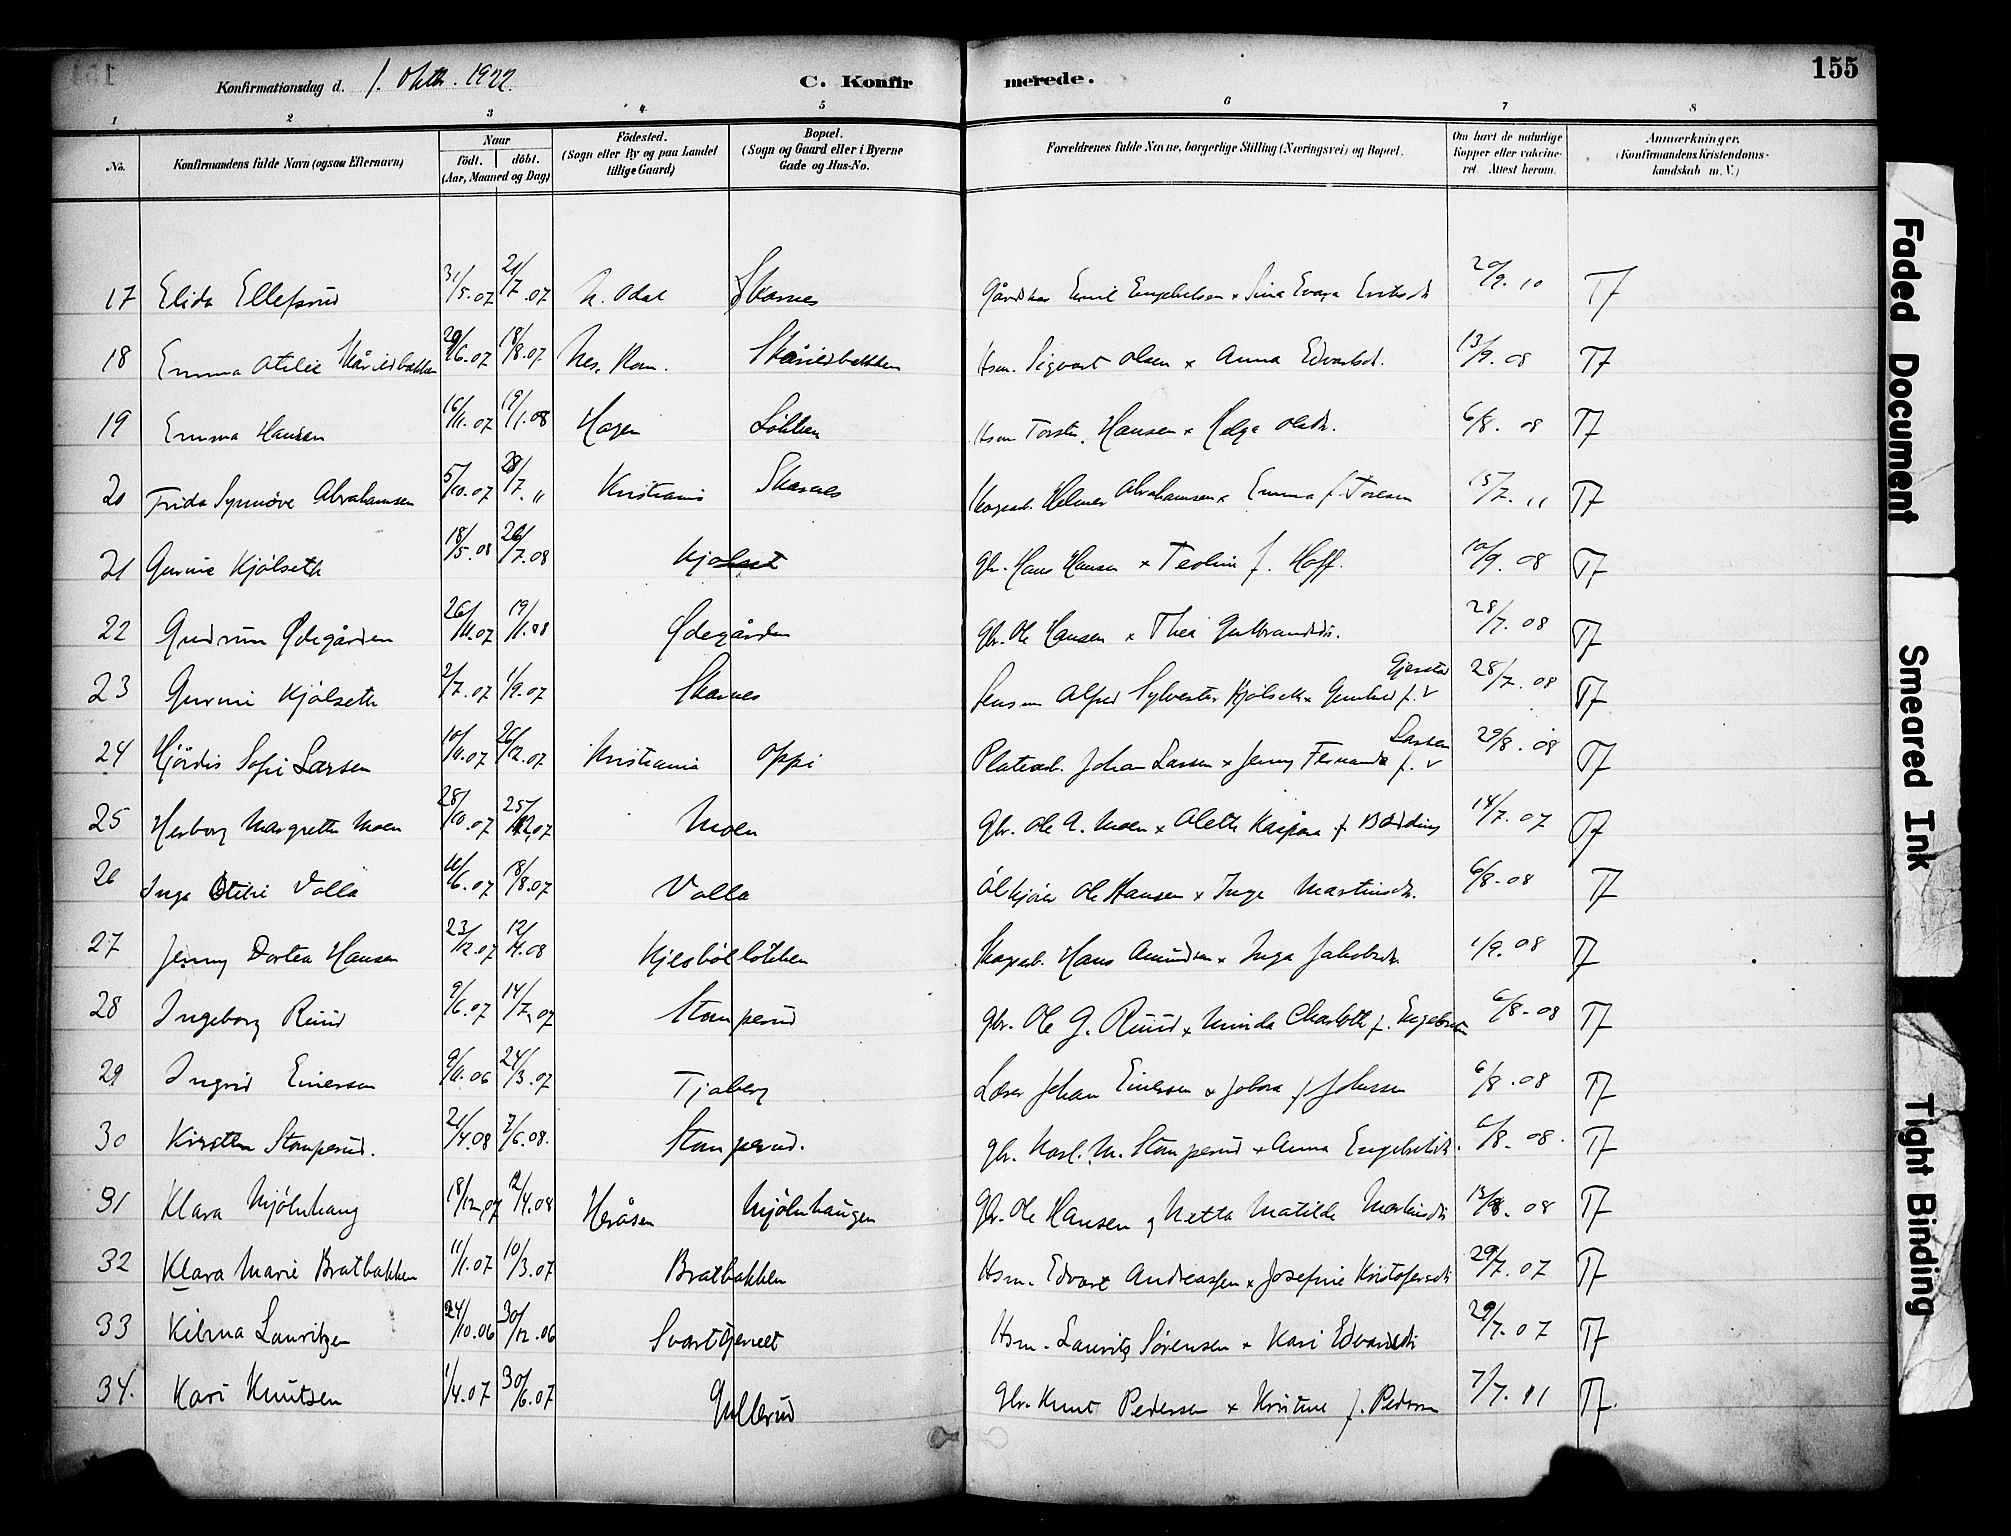 155
Konfirmationsdag d. 1. Oktb. 1922. C. Konfirmerede.
1 2 3 4 5 6 7 8
No. Konfirmandens fulde Navn (ogsaa Efternavn) Naar födt. döbt. (Aar, Maaned og Dag) Födested. (Sogn eller By og paa Landet tillige Gaard) Bopæl. (Sogn og Gaard eller i Byerne Gade og Hus-No. Forældrenes fulde Navne, borgerlige Stilling (Næringsvei) og Bopæl. Om havt de naturlige Kopper eller vakcineret Attest herom. Anmærkninger. (Konfirmandens Kristendomskundskab m. V.)
17 Elida Ellefsrud 31/5.07 21/7.07 N. Odal Skarnes Emil Engebretsen x Sina Eriksd. 20/9.10 T7
18 Emma Otilie 29/6.07 18/8.07 Nes, Rom. Hsm. Sigvart Olsen x Anna Edvartsd. 13/9.08 T7
19 Emma Hansen 16/11.07 19/1.08 Hagen Løkken Hsm Torsten Hansen x Helga Olsdr. 6/8.08 T7
20 Frida Synnøve Abrahamsen 5/10.07 28/7. " Kristiania Skarnes Helmer Abrahamsen x Emma f. Toresen 15/7.11 T7
21 Gurine Kjölseth 18/5.08 26/7.08 Kjølset Gbr. Hans Hansen x Teoline f. Hoff. 10/9.08 T7
22 Gudrun Ødegården 26/11.07 19/1.08 Ødegården Gbr. Ole Hansen x Thea Gulbrandsdr. 28/7.08 T7
23 Gurine Kjølseth 2/7.07 1/9.07 Skarnes Alfred Sylvester Kjølseth x Gunhild f. Gjersted 28/7.08 T7
24 Hjørdis Sofie Larsen 10/11.07 26/12.07 Kristiania Oppi Platearb. Johan Larsen x Jenny Fernanda f. Larsen 29/8.08 T7
25 Herborg Margrethe Moen 28/10.07 25/12.07 Moen Gbr. Ole A. Moen x Oleth f. 14/7.07 T7
26 Inga Otilie Volla 16/6.07 18/8.07 Volla Ølkjører Ole Hansen x Inga Martinsdr. 6/8.08 T7
27 Jenny Dortea Hansen 23/12.07 12/4.08 Kjesbølløkken Skogarb. Hans Amundsen x Inga Jakobsdr. 1/9.08 T7
28 Ingeborg Ruud 9/6.07 14/7.07 Stomperud Gbr. Ole G. Ruud x Minda Charlotte f. Engebretsen 6/8.08 T7
29 Ingrid Einersen 9/11.06 24/3.07 Tjaberg Johan Einersen x f. Johnsen 6/8.08 T7
30 Kirsten Stomperud. 21/4.08 7/6.08. Stomperud. Gbr. M. Stomperud x Anna Engebretsdr. 6/8.08. T7
31 Klara Mjölnhaug 18/12.07 12/4.08 Heråsen Mjölnhaugen Gbr. Ole Hansen og Netta Matilde Martinsdr 13/8.08 T7
32 Klara Marie Bratbakken 11/1.07 10/3.07 Bratbakken Hsm. Edvart Andreassen x Josefine Kristofersdr 29/7.07 T7
33 Kilma Lauritzen 24/10.06 30/12.06 Svarttjernet Hsm. Laurits Sørensen x Kari Edvardsdr 29/7.07 T7
34. Kari Knutsen 1/4.07 30/6.07 Gullerud Gbr. Knut Pedersen x Kristine f. Pedersen 7/7.11 T7.
Faded Document
Smeared Ink
Tight Binding